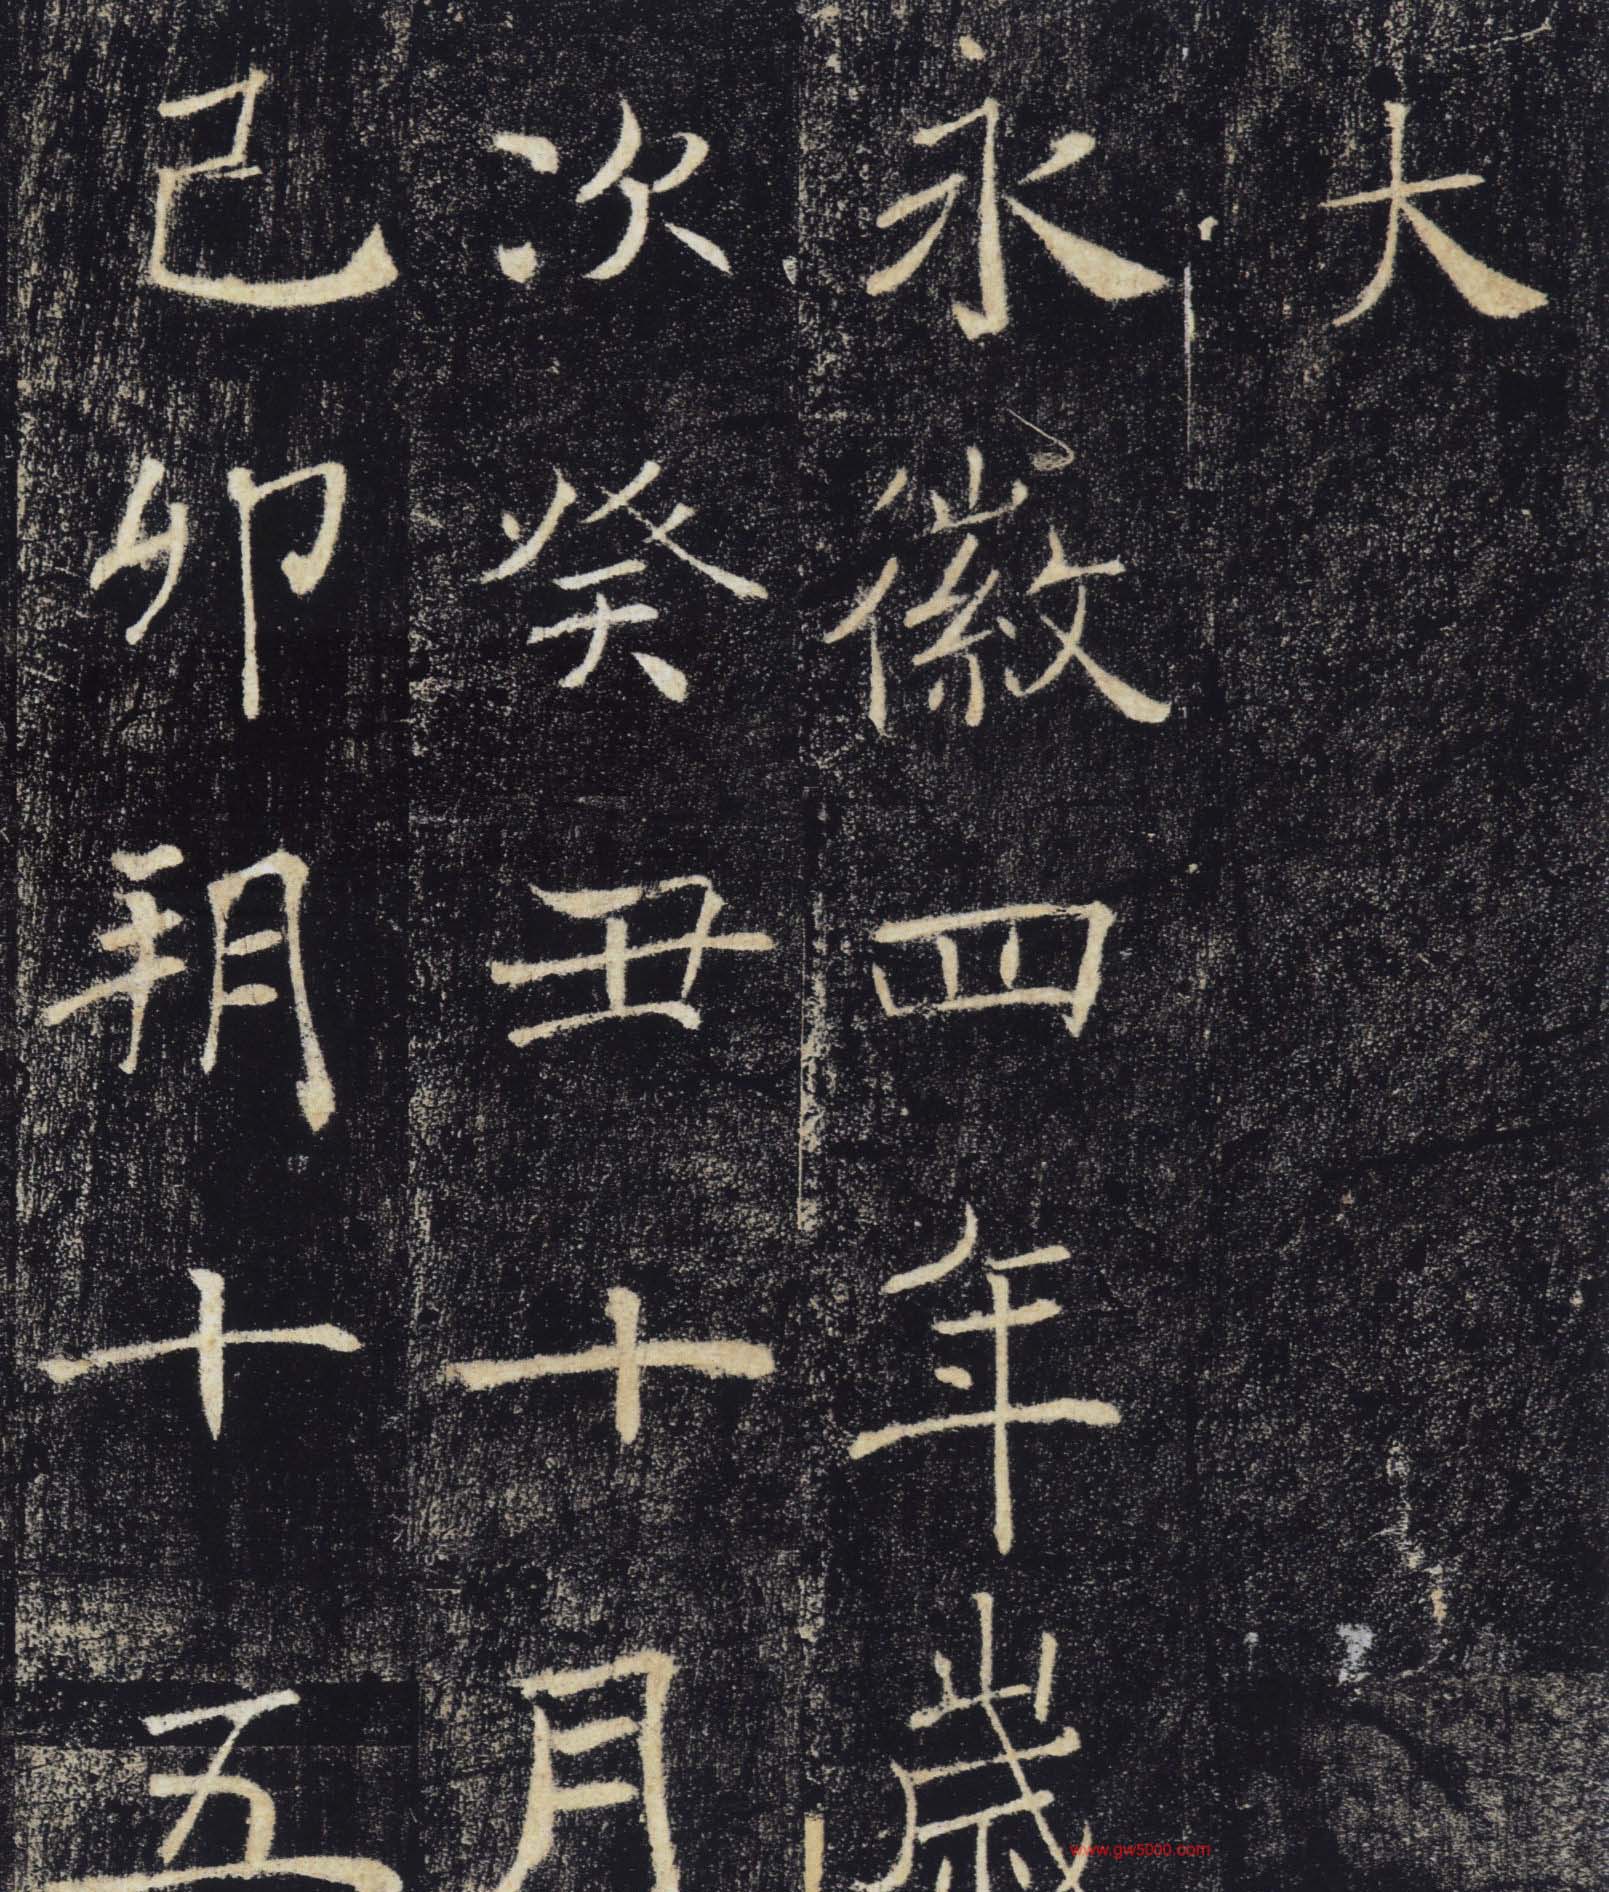 大
永徽四年歳
次癸丑十月
己卯朔十五
www.gw5000.com